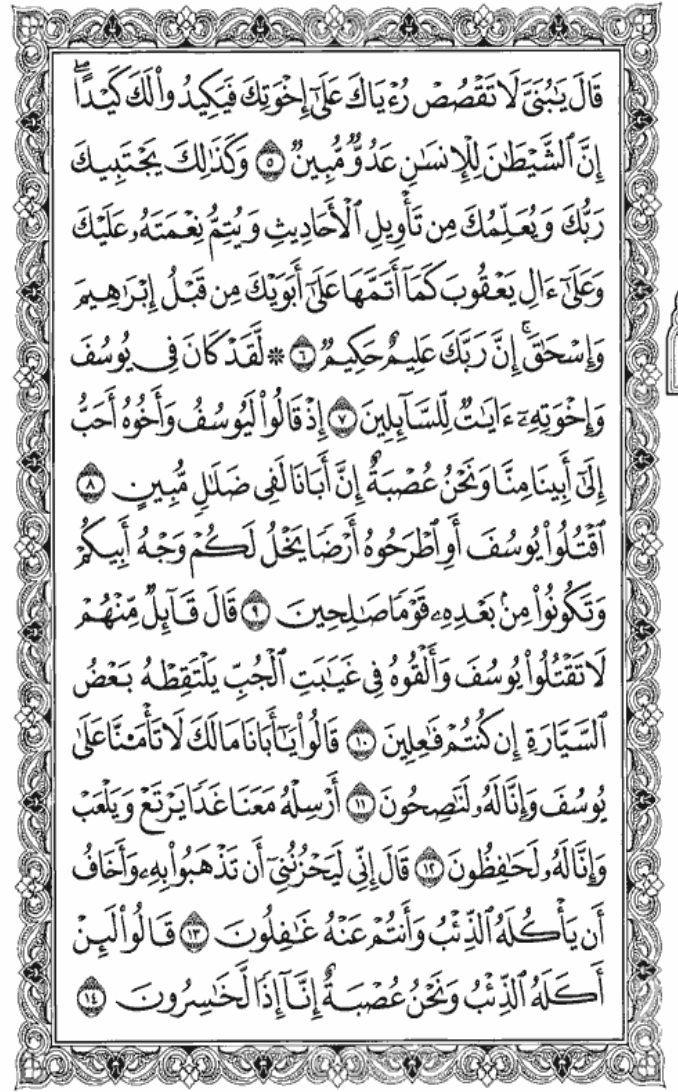 قَالَ يَٰبُنَىَّ لَا تَقْصُصْ رُءْيَاكَ عَلَىٰٓ إِخْوَتِكَ فَيَكِيدُوا۟ لَكَ كَيْدًا ۖ
إِنَّ ٱلشَّيْطَٰنَ لِلْإِنسَٰنِ عَدُوٌّ مُّبِينٌ ٥ وَكَذَٰلِكَ يَجْتَبِيكَ
رَبُّكَ وَيُعَلِّمُكَ مِن تَأْوِيلِ ٱلْأَحَادِيثِ وَيُتِمُّ نِعْمَتَهُۥ عَلَيْكَ
وَعَلَىٰٓ ءَالِ يَعْقُوبَ كَمَآ أَتَمَّهَا عَلَىٰٓ أَبَوَيْكَ مِن قَبْلُ إِبْرَٰهِيمَ
وَإِسْحَٰقَ ۚ إِنَّ رَبَّكَ عَلِيمٌ حَكِيمٌ ٦ ۞ لَّقَدْ كَانَ فِى يُوسُفَ
وَإِخْوَتِهِۦٓ ءَايَٰتٌ لِّلسَّآئِلِينَ ٧ إِذْ قَالُوا۟ لَيُوسُفُ وَأَخُوهُ أَحَبُّ
إِلَىٰٓ أَبِينَا مِنَّا وَنَحْنُ عُصْبَةٌ إِنَّ أَبَانَا لَفِى ضَلَٰلٍ مُّبِينٍ ٨
ٱقْتُلُوا۟ يُوسُفَ أَوِ ٱطْرَحُوهُ أَرْضًا يَخْلُ لَكُمْ وَجْهُ أَبِيكُمْ
وَتَكُونُوا۟ مِنۢ بَعْدِهِۦ قَوْمًا صَٰلِحِينَ ٩ قَالَ قَآئِلٌ مِّنْهُمْ
لَا تَقْتُلُوا۟ يُوسُفَ وَأَلْقُوهُ فِى غَيَٰبَتِ ٱلْجُبِّ يَلْتَقِطْهُ بَعْضُ
ٱلسَّيَّارَةِ إِن كُنتُمْ فَٰعِلِينَ ١٠ قَالُوا۟ يَٰٓأَبَانَا مَا لَكَ لَا تَأْمَ۫نَّا عَلَىٰ
يُوسُفَ وَإِنَّا لَهُۥ لَنَٰصِحُونَ ١١ أَرْسِلْهُ مَعَنَا غَدًا يَرْتَعْ وَيَلْعَبْ
وَإِنَّا لَهُۥ لَحَٰفِظُونَ ١٢ قَالَ إِنِّى لَيَحْزُنُنِىٓ أَن تَذْهَبُوا۟ بِهِۦ وَأَخَافُ
أَن يَأْكُلَهُ ٱلذِّئْبُ وَأَنتُمْ عَنْهُ غَٰفِلُونَ ١٣ قَالُوا۟ لَئِنْ
أَكَلَهُ ٱلذِّئْبُ وَنَحْنُ عُصْبَةٌ إِنَّآ إِذًا لَّخَٰسِرُونَ ١٤